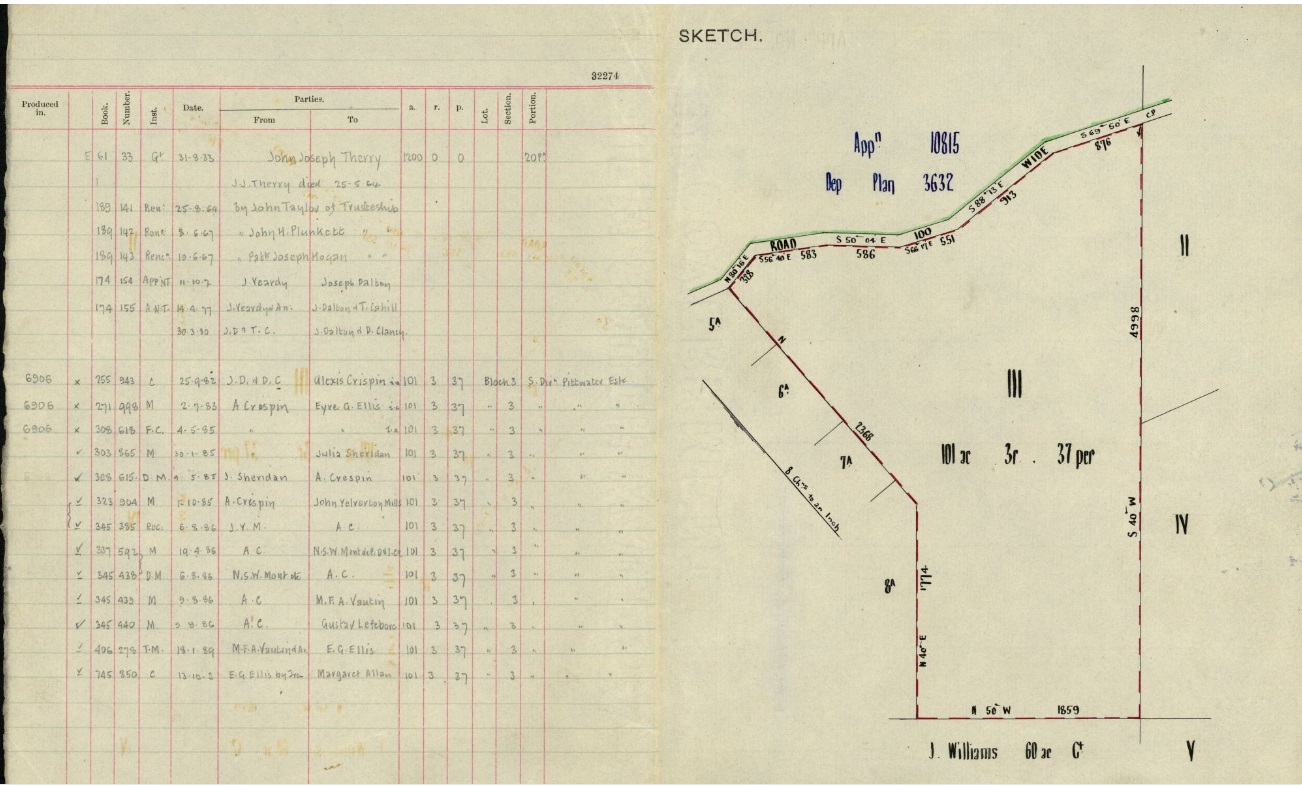 32274
Produced in. Book. Number. Inst. Date. Parties. From To a. r. p. Lot. Section. Portion.
E 61 33 Gt 31-8-33 John Joseph Therry 1200 0 0
J.J. Therry died 25-5-64
189 141 25-8-64 by John Taylor of Trusteeship
189 142 8-6-67 " John H. Plunkett "
189 143 10-6-67 " Patk Joseph Hogan " "
174 154 App NT J Veardy Joseph Dalton
174 155 A.N.T. 14-4-77 J. Veardy & An. J. Dalton & T. Cahill
30-3-80 J.D & T.C. J. Dalton & D. Clancy.
6906 x 255 943 C J.D. & D.C Alexis Crispin 101 3 37 Block 3 S. Divn Pittwater Este
6906 x 271 998 M 2-7-83 A Crispin Eyre G. Ellis 101 3 37 " 3 " " "
6906 x 308 618 F.C. 4-5-85 " " 101 3 37 " 3 " " "
303 865 M 30-1-85 Julia Sheridan 101 3 37 " 3 " " "
308 615 D.M J. Sheridan A. Crispin 101 3 37 " 3 " " "
323 904 M A. Crispin John Yelverton Mills 101 3 37 " 3 " " "
345 395 Rec. 6-8-86 J.Y.M. A C. 101 3 37 " 3 " " "
337 592 M 19-4-86 A C. N.S.W. Mont de P. 101 3 37 " 3 " " "
345 438 D.M N.S.W. Mont de A.C. 101 3 37 " 3 " " "
345 439 M 9-8-86 A.C M.F.A. Vautin 101 3 37 " 3 " " "
345 440 M. A.C. Gustav 101 3 37 " 3 " " "
406 278 T.M. 18-1-89 M.F.A. Vautin & An. E.G. Ellis 101 3 37 " 3 " " "
745 850 C 13-10-3 E.G Ellis by Margaret Allan 101 3 37 " 3 " " "
SKETCH.
Appn 10815
Dep Plan 3632
S 69° 50' E CP
876
WIDE
S 88° 13' E
913
100
551
S 50° 04' E
586
ROAD
S 56° 40' E 583
N 80° 16' E
328
II
5A
N
4998
6A
III
2368
7A
101 ac 3r. 37 per
8 Chns to an Inch
S 40° W
IV
8A
1774
N 40° E
N 50° W 1859
J. Williams 60 ac Gt
V